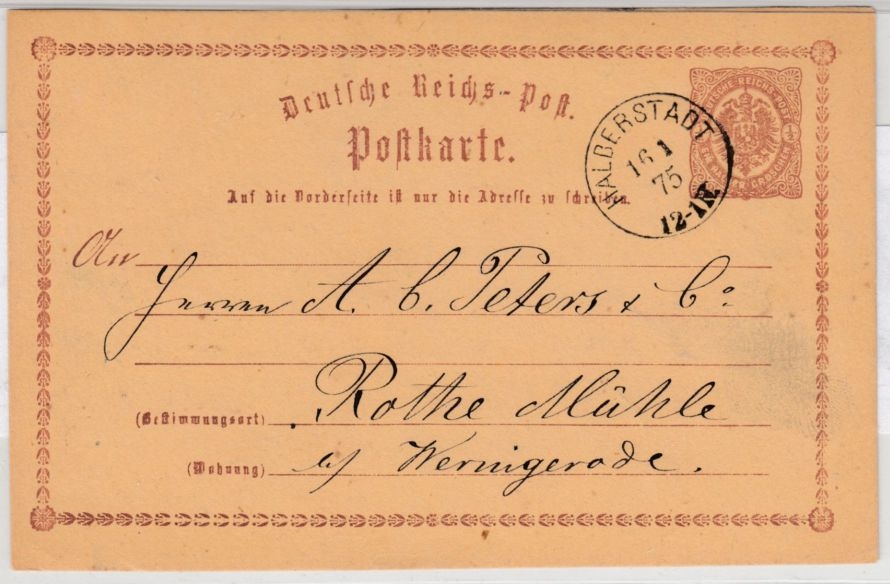 Deutsche Reichs-Post.
Postkarte.
Auf die Vorderseite ist nur die Adresse zu schreiben.
HALBERSTADT
16 1
75
12-1N
DEUTSCHE REICHS-POST
EIN HALBER GROSCHEN
1/2
An
Herren A. C. Peters & Co
(Bestimmungsort) Rothe Mühle
(Wohnung) b/ Wernigerode.